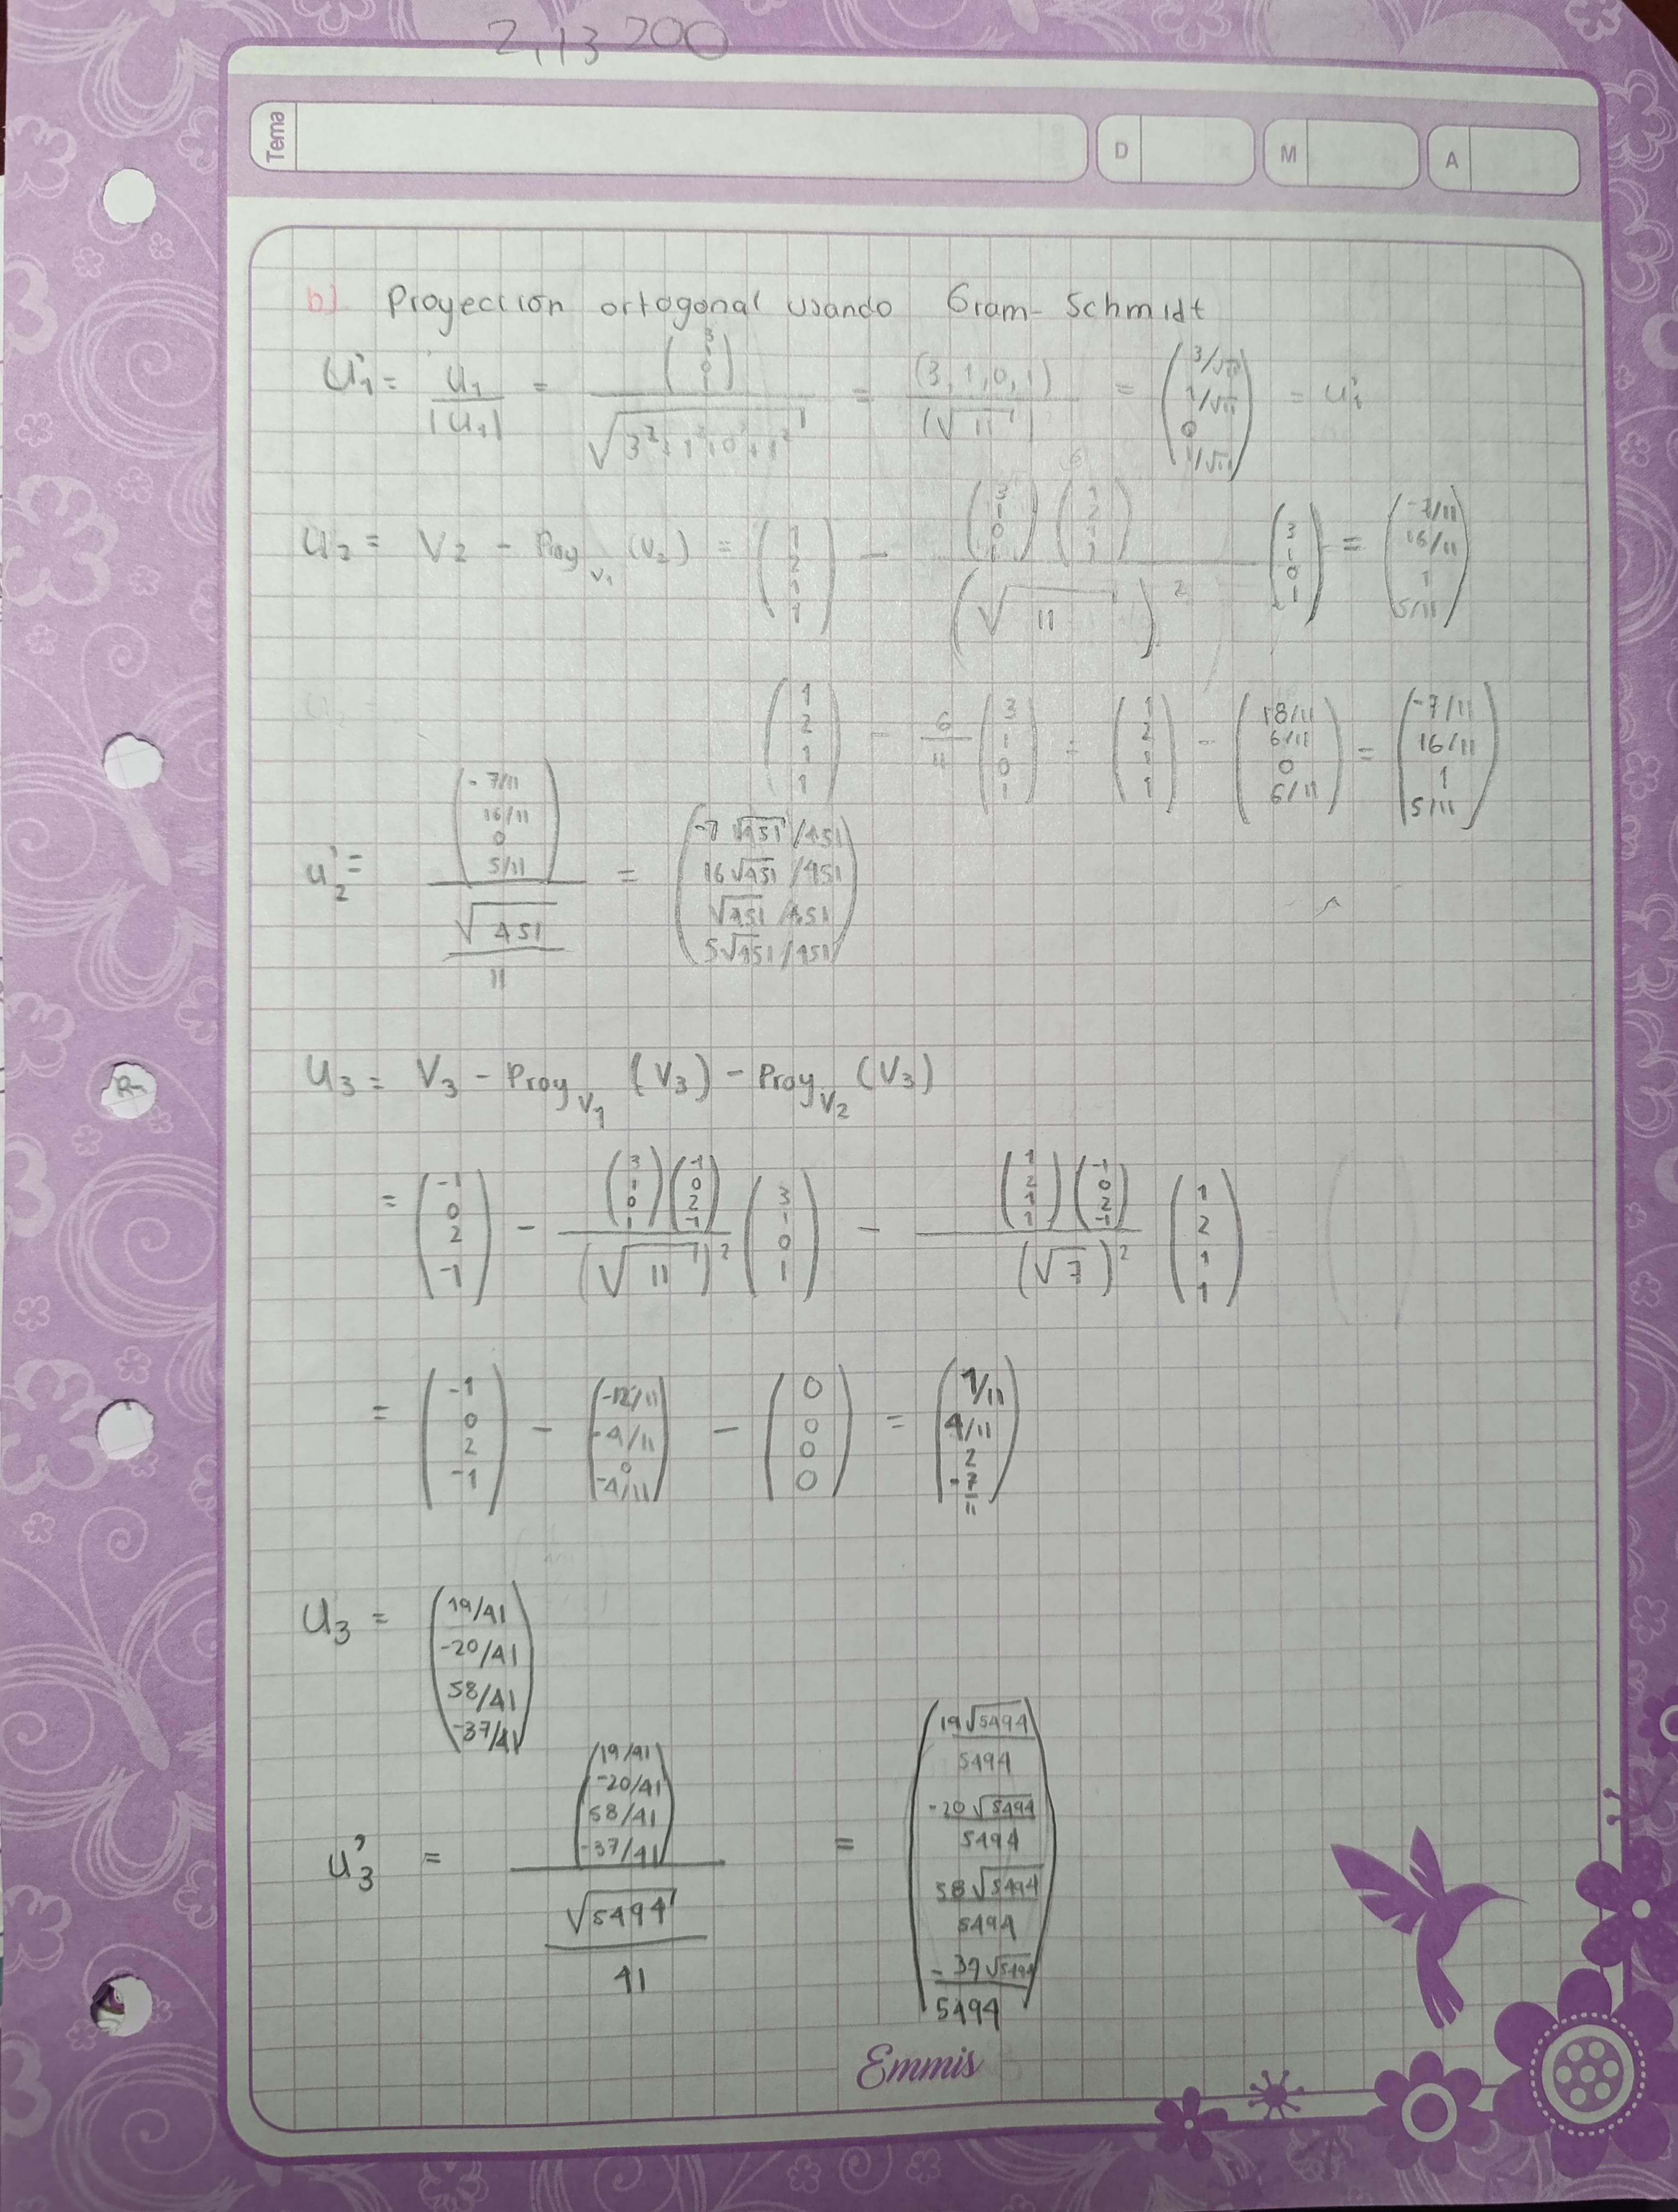 2,13 200
Tema D M A
b) Proyección ortogonal usando Gram-Schmidt
U'1 = U1 / |U1| = (3, 1, 0, 1) / √(3²+1²+0²+1²) = (3, 1, 0, 1) / (√11) = (3/√11, 1/√11, 0, 1/√11) = U'1
U2 = V2 - Proy V1 (V2) = (1, 2, 1, 1) - (3, 1, 0, 1)(1, 2, 1, 1) / (√11)² (3, 1, 0, 1) = (-7/11, 16/11, 1, 5/11)
(1, 2, 1, 1) - 6/11 (3, 1, 0, 1) = (1, 2, 1, 1) - (18/11, 6/11, 0, 6/11) = (-7/11, 16/11, 1, 5/11)
U'2 = (-7/11, 16/11, 0, 5/11) / (√451 / 11) = (-7√451/451, 16√451/451, √451/451, 5√451/451)
U3 = V3 - Proy V1 (V3) - Proy V2 (V3)
= (-1, 0, 2, -1) - (3, 1, 0, 1)(-1, 0, 2, -1) / (√11)² (3, 1, 0, 1) - (1, 2, 1, 1)(-1, 0, 2, -1) / (√7)² (1, 2, 1, 1)
= (-1, 0, 2, -1) - (-12/11, -4/11, 0, -4/11) - (0, 0, 0, 0) = (1/11, 4/11, 2, -7/11)
U3 = (19/41, -20/41, 58/41, -37/41)
U'3 = (19/41, -20/41, 58/41, -37/41) / (√5494 / 41) = (19√5494/5494, -20√5494/5494, 58√5494/5494, -37√5494/5494)
Emmis